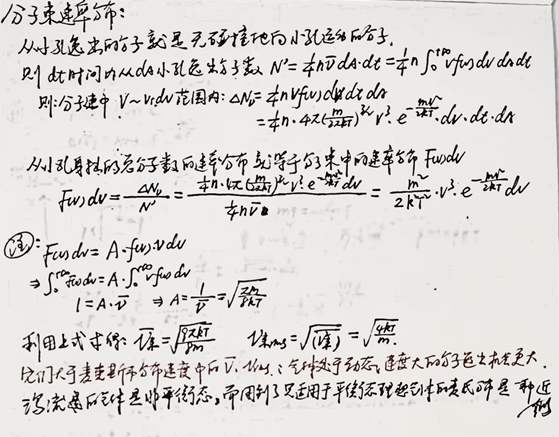 分子束速率分布:
从小孔逸出的分子就是无碰撞地向小孔运动的分子.
则 dt时间内从dA小孔逸出分子数 N' = ¼n v̄ dA·dt = ¼n ∫₀^{+∞} v f(v) dv dA dt
则:分子束中 v~v+dv范围内: ΔN₀ = ¼n v f(v) dv dt dA
= ¼n·4π(m/2πkT)^{3/2} v³·e^{-mv²/2kT}·dv·dt·dA
从小孔射出的总分子数的速率分布就等于分子束中的速率分布 F(v)dv
F(v)dv = ΔN₀/N' = ¼n·4π(m/2πkT)^{3/2} v³·e^{-mv²/2kT} dv / ¼n v̄ = m²/2k²T²·v³·e^{-mv²/2kT} dv
注: F(v)dv = A·f(v)·v dv
⇒ ∫₀^{+∞} F(v)dv = A·∫₀^{+∞} v f(v) dv
1 = A·v̄ ⇒ A = 1/v̄ = √(πm/8kT)
利用上式求得: v̄束 = √(9πkT/8m) v束rms = √(v²束) = √(4kT/m).
它们大于麦克斯韦分布速度中的 v̄. vrms; 气体处于动态, 速度大的分子逸出机会更大.
泻流是的气体是非平衡态, 而用到了只适用于平衡态理想气体的麦氏分布是一种近似